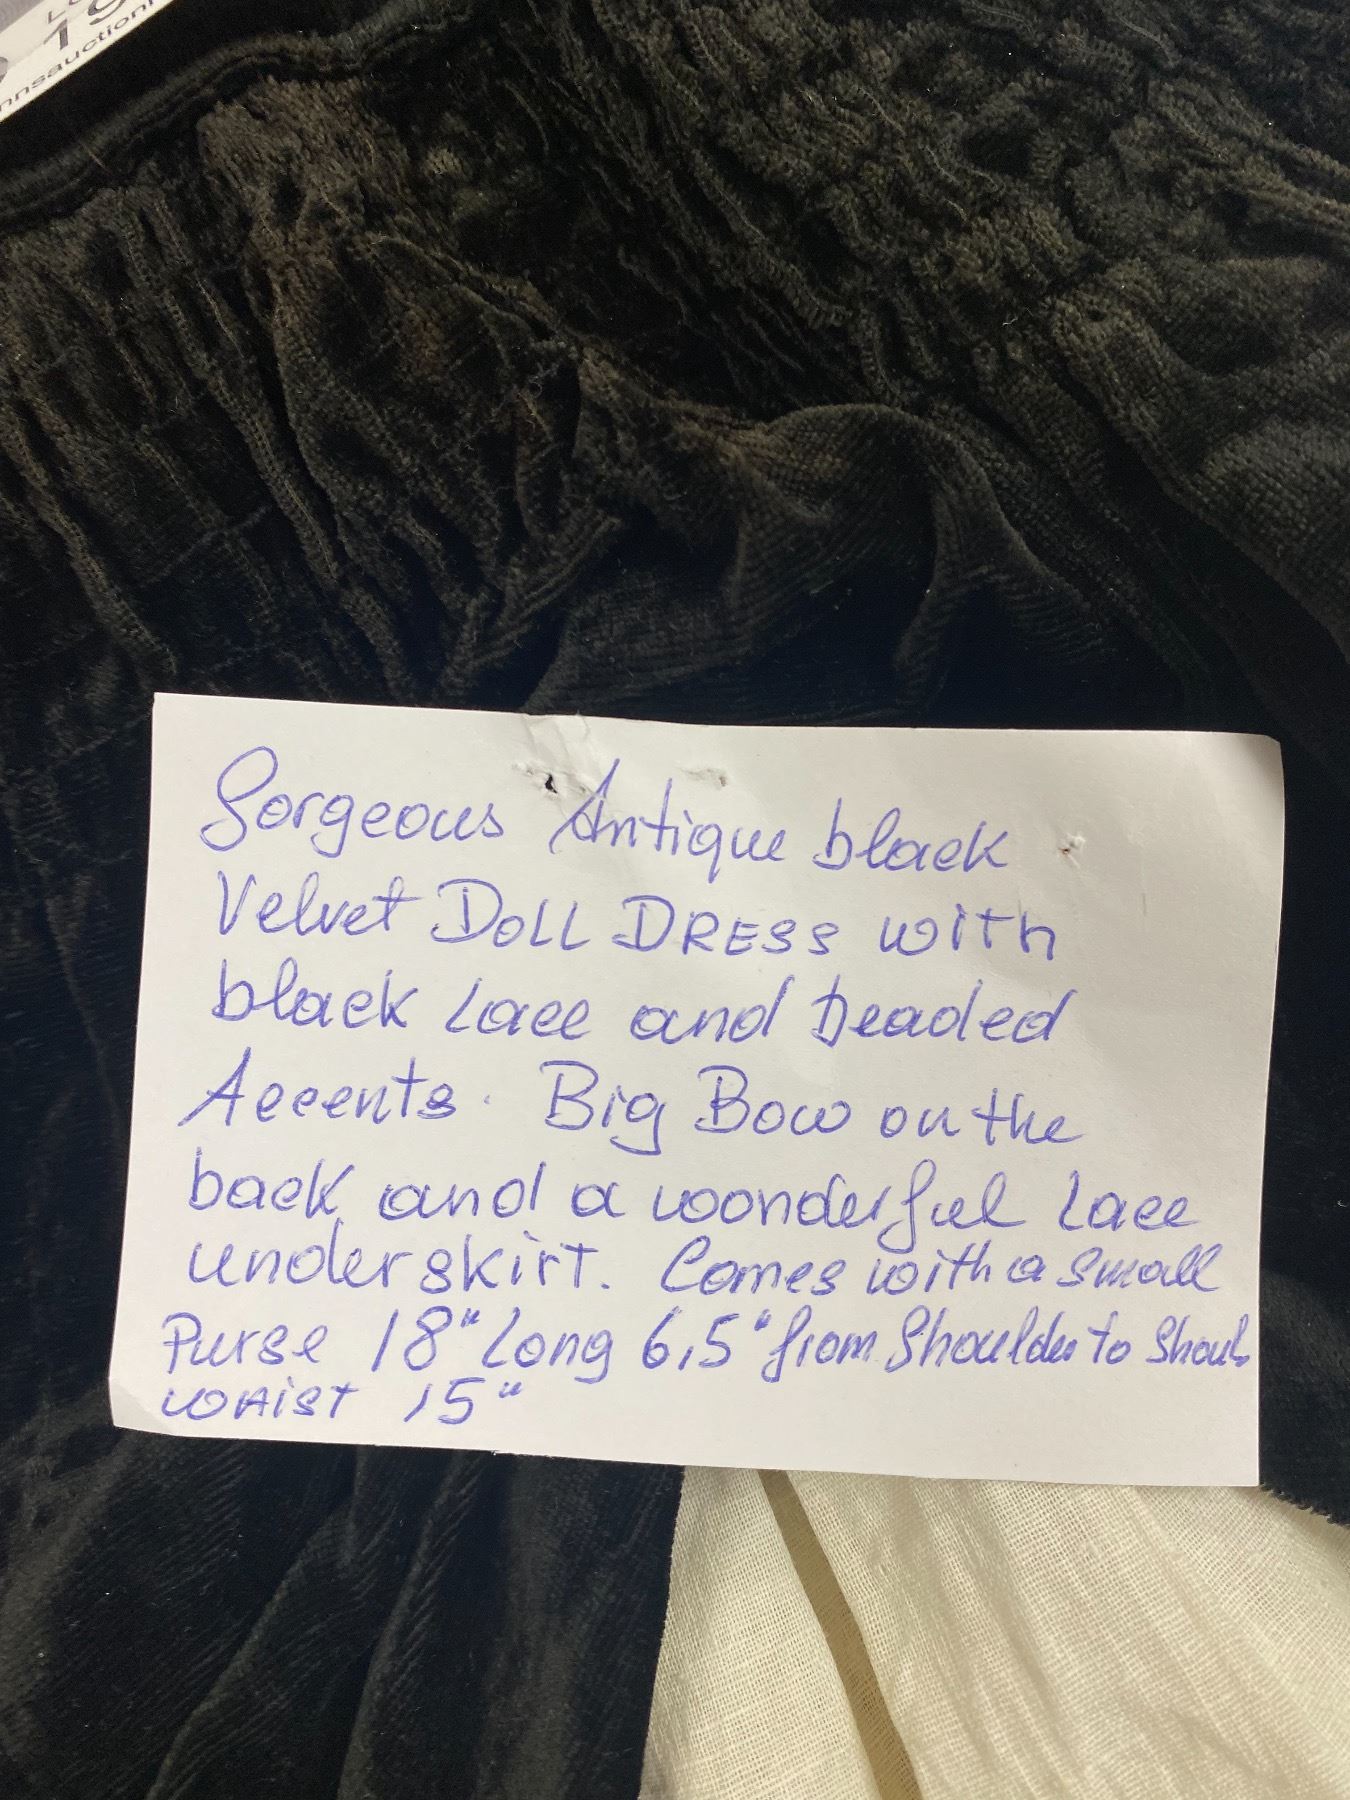 19
nnsauction
Gorgeous Antique black
Velvet DOLL DRESS with
black Lace and beaded
Accents. Big Bow on the
back and a woonderful Lace
underskirt. Comes with a small
Purse 18" Long 6,5" from Shoulder to Shoul
WAIST 15"